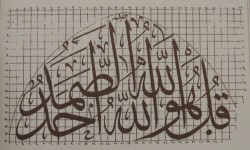 قُلْ هُوَ اللهُ أَحَدٌ
اللهُ الصَّمَدُ